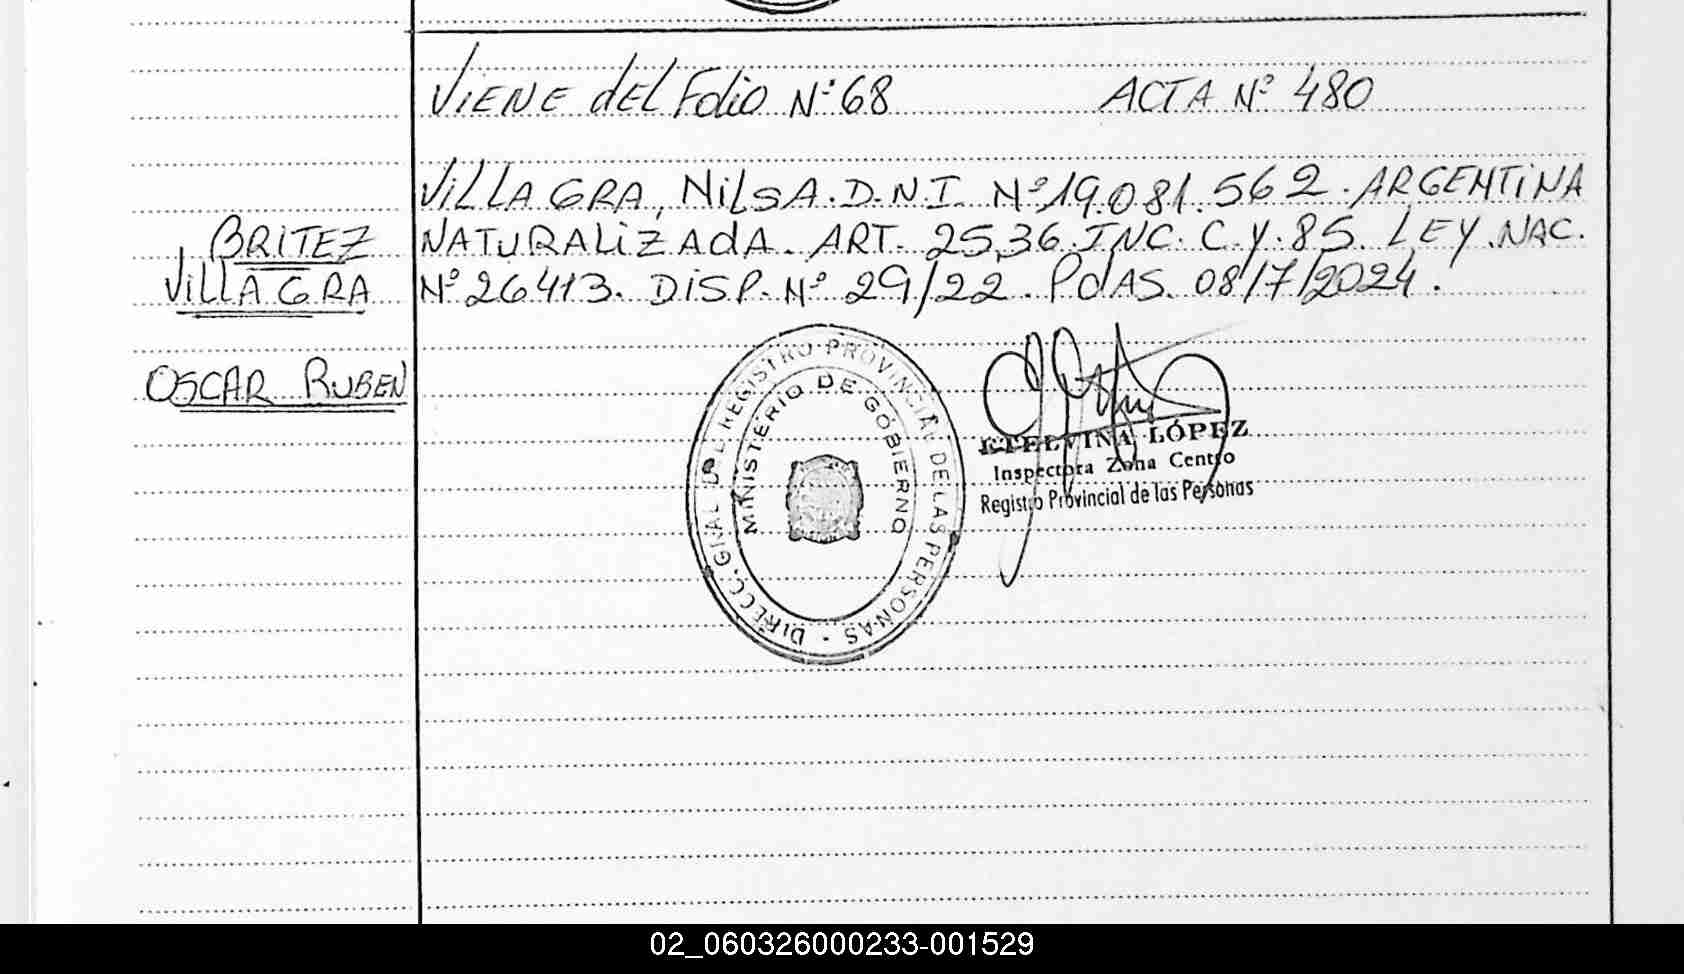 ViENE dEL Folio N° 68 ACTA N° 480
ViLLAGRA, NiLSA. D.N.I. N° 19.081.562. ARGENTiNA
BRITEZ NATURALiZAdA. ART. 25,36. INC. C.Y. 85. LEY. NAC.
ViLLAGRA N° 26413. DiSP. N° 29/22. PdAS. 08/7/2024.
OSCAR RUBEN
DIRECC. GRAL DEL REGISTRO PROVINCIAL DE LAS PERSONAS -
MINISTERIO DE GOBIERNO
ETELVINA LÓPEZ
Inspectora Zona Centro
Registro Provincial de las Personas
02_060326000233-001529